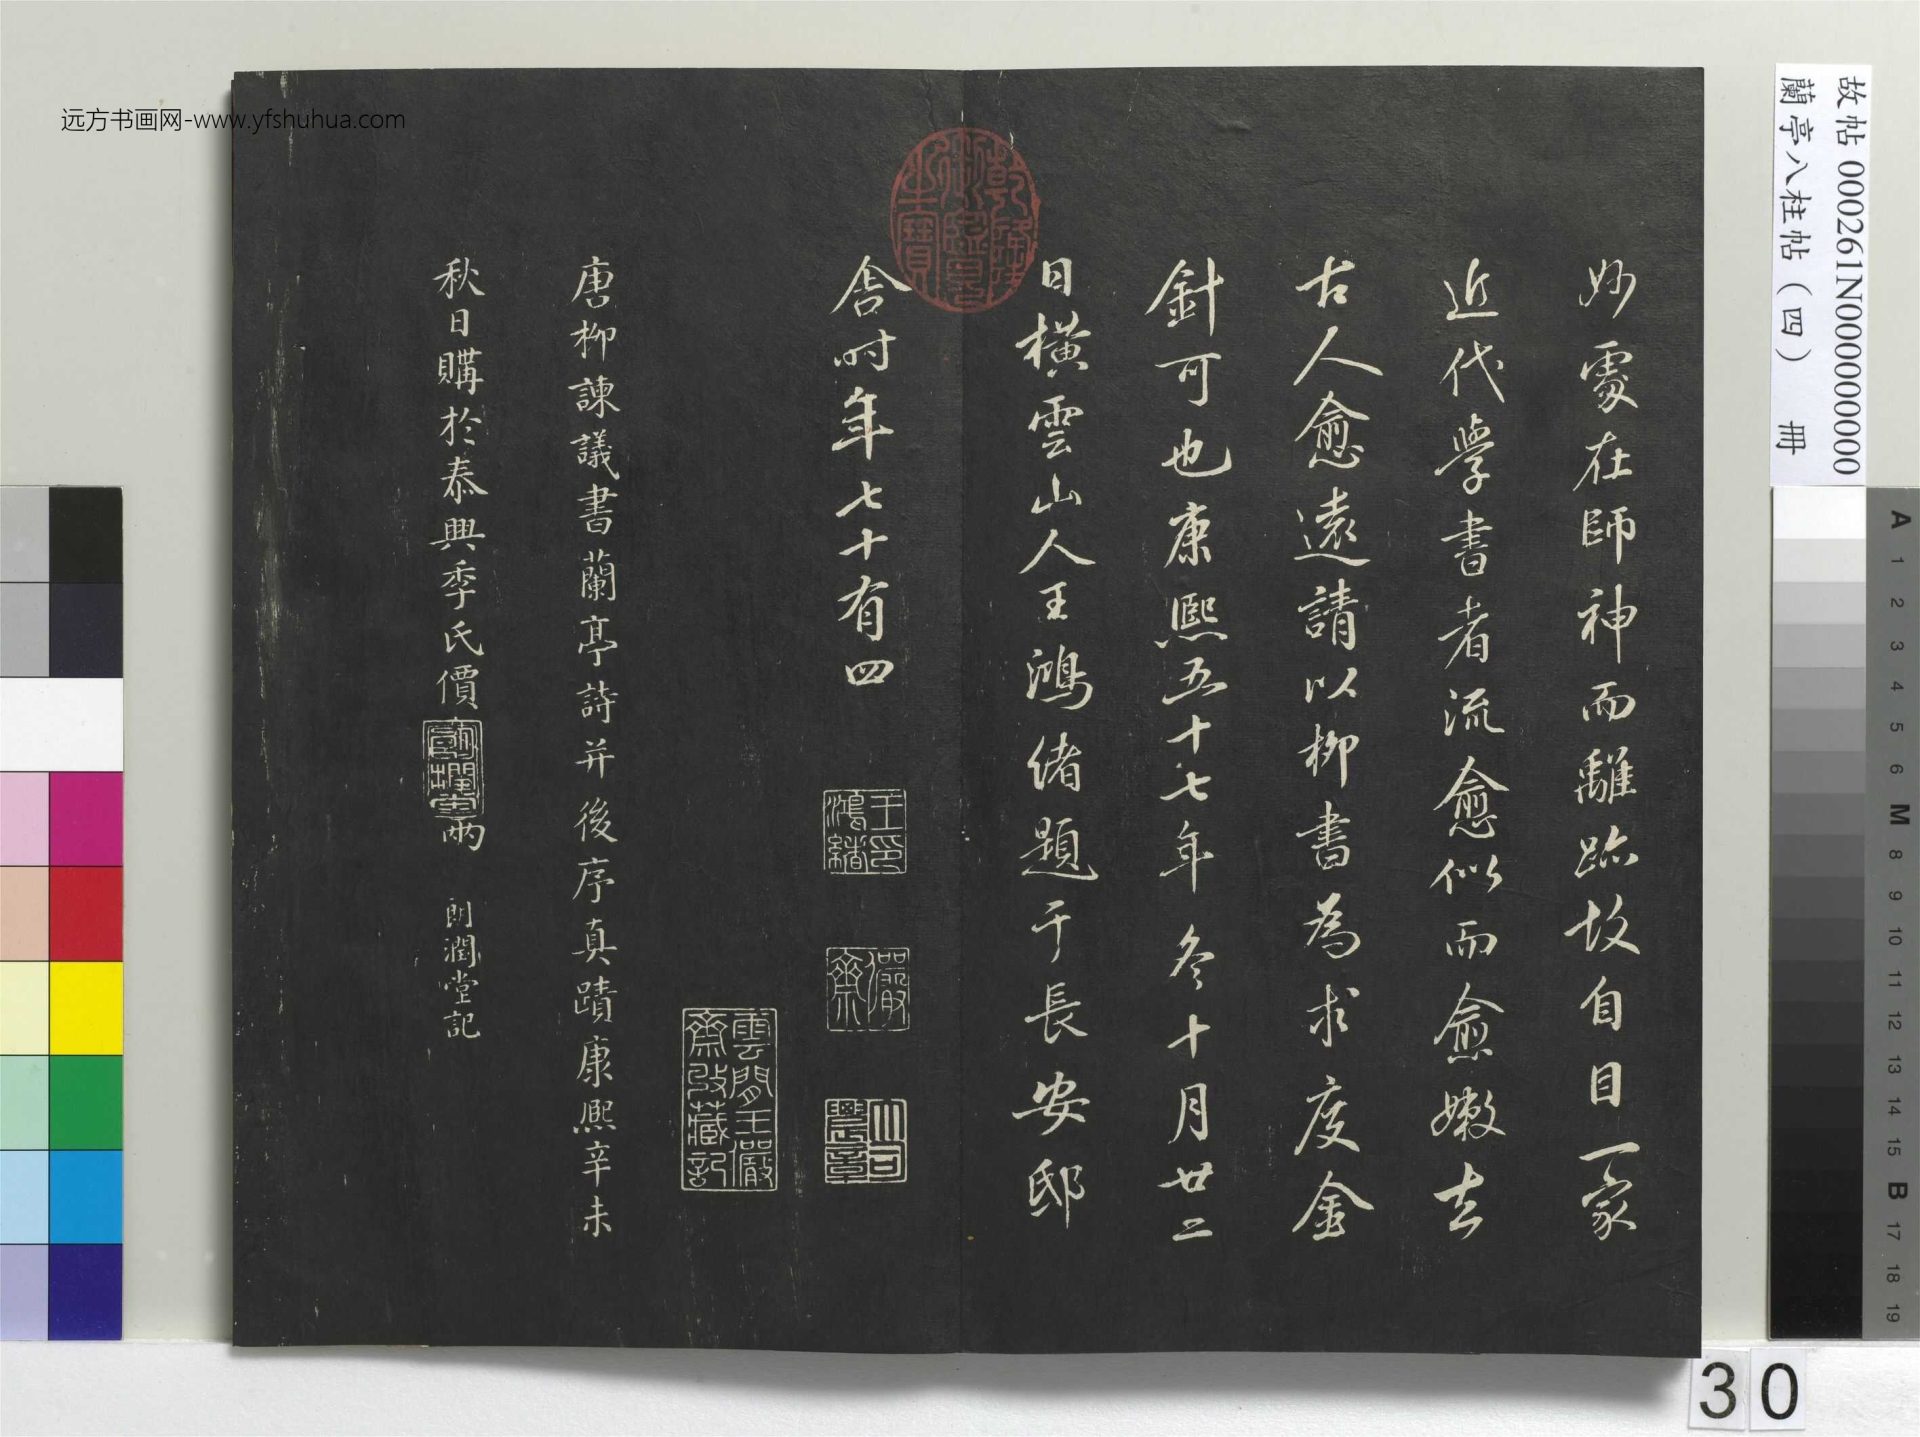 妙處在師神而離跡故自目一家
近代學書者流愈似而愈嫩去
古人愈遠請以柳書為求度金
針可也康熙五十七年冬十月廿二
日橫雲山人王鴻緒題于長安邸
舍時年七十有四
王印鴻緒
儼齋
雲間王儼齋收藏記
唐柳諫議書蘭亭詩并後序真蹟康熙辛未
秋日購於泰興季氏價
兩 朗潤堂記
乾隆御覽之寶
故帖 000261N000000000
蘭亭八柱帖（四） 冊
远方书画网-www.yfshuhua.com
A 1 2 3 4 5 6 M 8 9 10 11 12 13 14 15 B 17 18 19
30